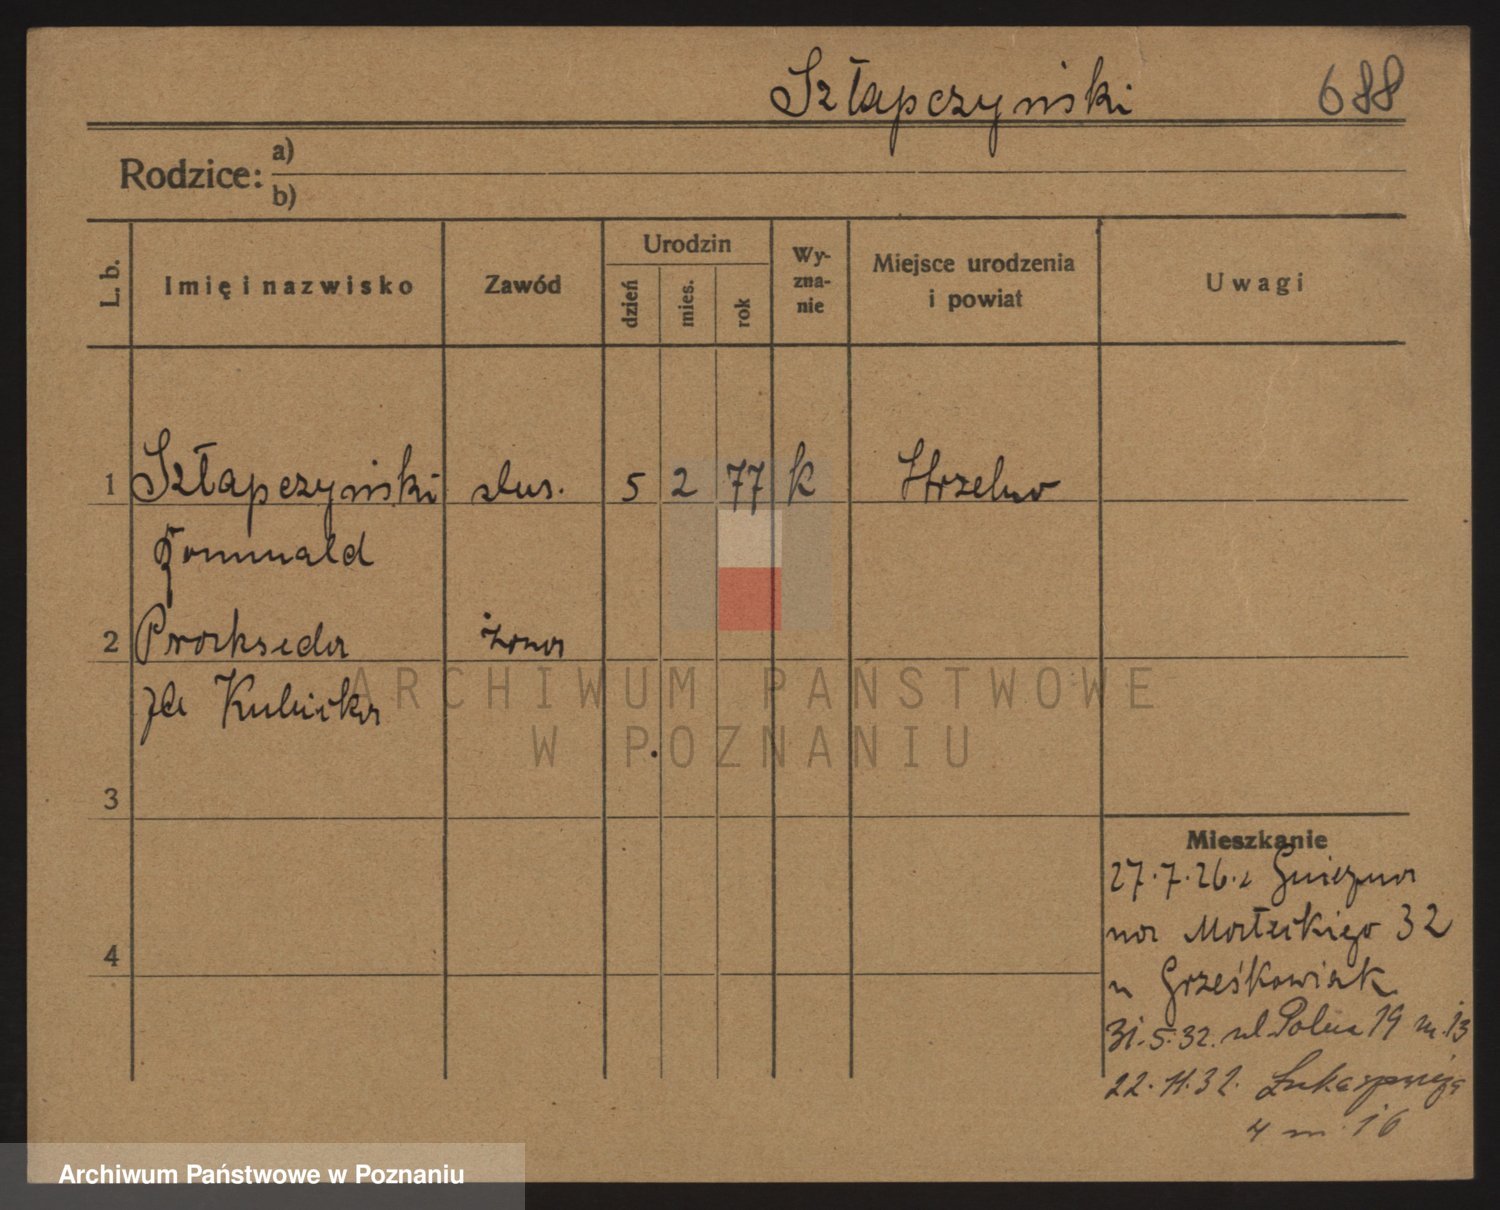 Szłapczyński 688
Rodzice: a)
b)
L. b. Imię i nazwisko Zawód Urodzin dzień mies. rok Wyznanie Miejsce urodzenia i powiat Uwagi
1 Szłapczyński ślus. 5 2 77 k Strzelno
Romuald
2 Prakseda żona
zd Kubicka
ARCHIWUM PAŃSTWOWE
W POZNANIU
3
4
Mieszkanie
27.7.26. z Gniezna
na Małeckiego 32
u Grześkowiak
31.5.32. ul. Polna 19 m. 13
22.11.32. Łukaszewicza
4 m 16
Archiwum Państwowe w Poznaniu